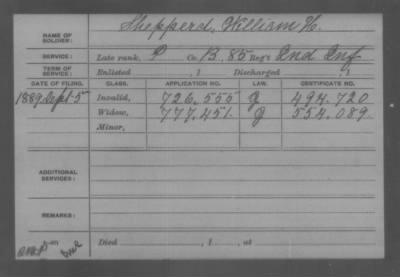 NAME OF SOLDIER: Shepperd, William H.
SERVICE: Late rank, P Co. B, 85 Reg't Ind Inf
TERM OF SERVICE: Enlisted , 1 Discharged , 1
DATE OF FILING. CLASS. APPLICATION NO. LAW. CERTIFICATE NO.
1889 Sept 5 Invalid, 726.555 G 494.720
Widow, 777.451 G 554.089
Minor,
ADDITIONAL SERVICES:
REMARKS:
Died , 1 , at